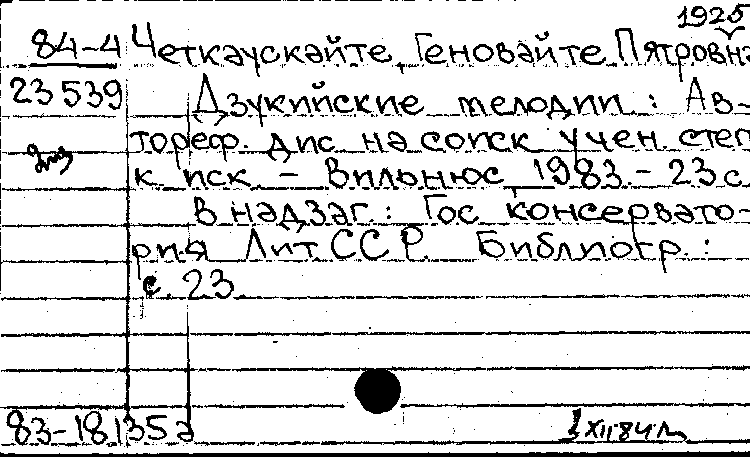 1925
84-4 Четкаускайте, Геновайте Пятровна
23539 Дзукийские мелодии : Ав-
тореф. дис на соиск учен. степ
2мз к иск. - Вильнюс, 1983. - 23 с.
В надзаг.: Гос консервато-
рия Лит. ССР. Библиогр.:
с. 23
83-18135а